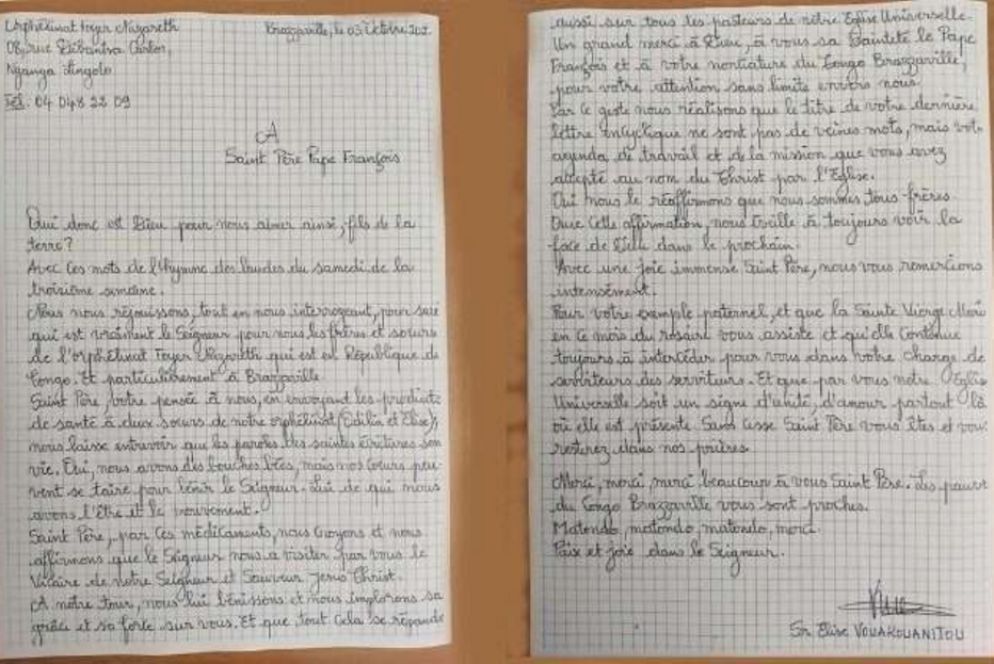 Orphelinat Foyer Nazareth
Brazzaville, le 03 Octobre 202
08, rue
Nganga Lingolo
Tél: 04 048 22 09
A
Saint Père Pape François
Qui donc est Dieu pour nous aimer ainsi, fils de la
terre?
Avec ces mots de l'hymne des laudes du samedi de la
troisième semaine.
Nous nous réjouissons, tout en nous interrogeant, pour
qui est vraiment le Seigneur pour nous les frères et soeurs
de l'orphelinat Foyer Nazareth qui est en République du
Congo. Et particulièrement à Brazzaville.
Saint Père, votre pensée à nous, en envoyant les produits
de santé à deux soeurs de notre orphelinat (
nous laisse entrevoir que les paroles des saintes écritures son
vie. Oui, nous avons des bouches bées, mais nos coeurs peu
vent se taire pour bénir le Seigneur. Lui de qui nous
avons l'être et le mouvement.
Saint Père, par ces médicaments, nous croyons et nous
affirmons que le Seigneur nous a visiter par vous le
Vicaire de notre Seigneur et Sauveur Jesus Christ.
A notre tour, nous lui bénissons et nous implorons sa
grâce et sa force sur vous. Et que tout cela se répande
aussi sur tous les pasteurs de notre Eglise Universelle.
Un grand merci à Dieu, à vous sa Sainteté le Pape
François et à votre nonciature du Congo Brazzaville,
pour votre attention sans limite envers nous.
Par ce geste nous réalisons que le titre de votre dernière
lettre encyclique ne sont pas de veines mots, mais votr
agenda de travail et de la mission que vous avez
accepté au nom du Christ par l'Eglise.
Oui nous le réaffirmons que nous sommes tous frères.
Que cette affirmation, nous éveille à toujours voir la
face de Dieu dans le prochain.
Avec une joie immense Saint Père, nous vous remercions
intensément.
Pour votre exemple paternel, et que la Sainte Vierge Marie
en ce mois du rosaire vous assiste et qu'elle continue
toujours à intercéder pour vous dans votre charge de
serviteurs des serviteurs. Et que par vous notre Eglise
Universelle soit un signe d'unité, d'amour partout là
où elle est présente. Sans cesse Saint Père vous êtes et vous
resterez dans nos prières.
Merci, merci, merci beaucoup à vous Saint Père. Les pauvres
du Congo Brazzaville vous sont proches.
Matondo, matondo, matondo, merci.
Paix et joie dans le Seigneur.
Sr Elise VOUAKOUANITOU